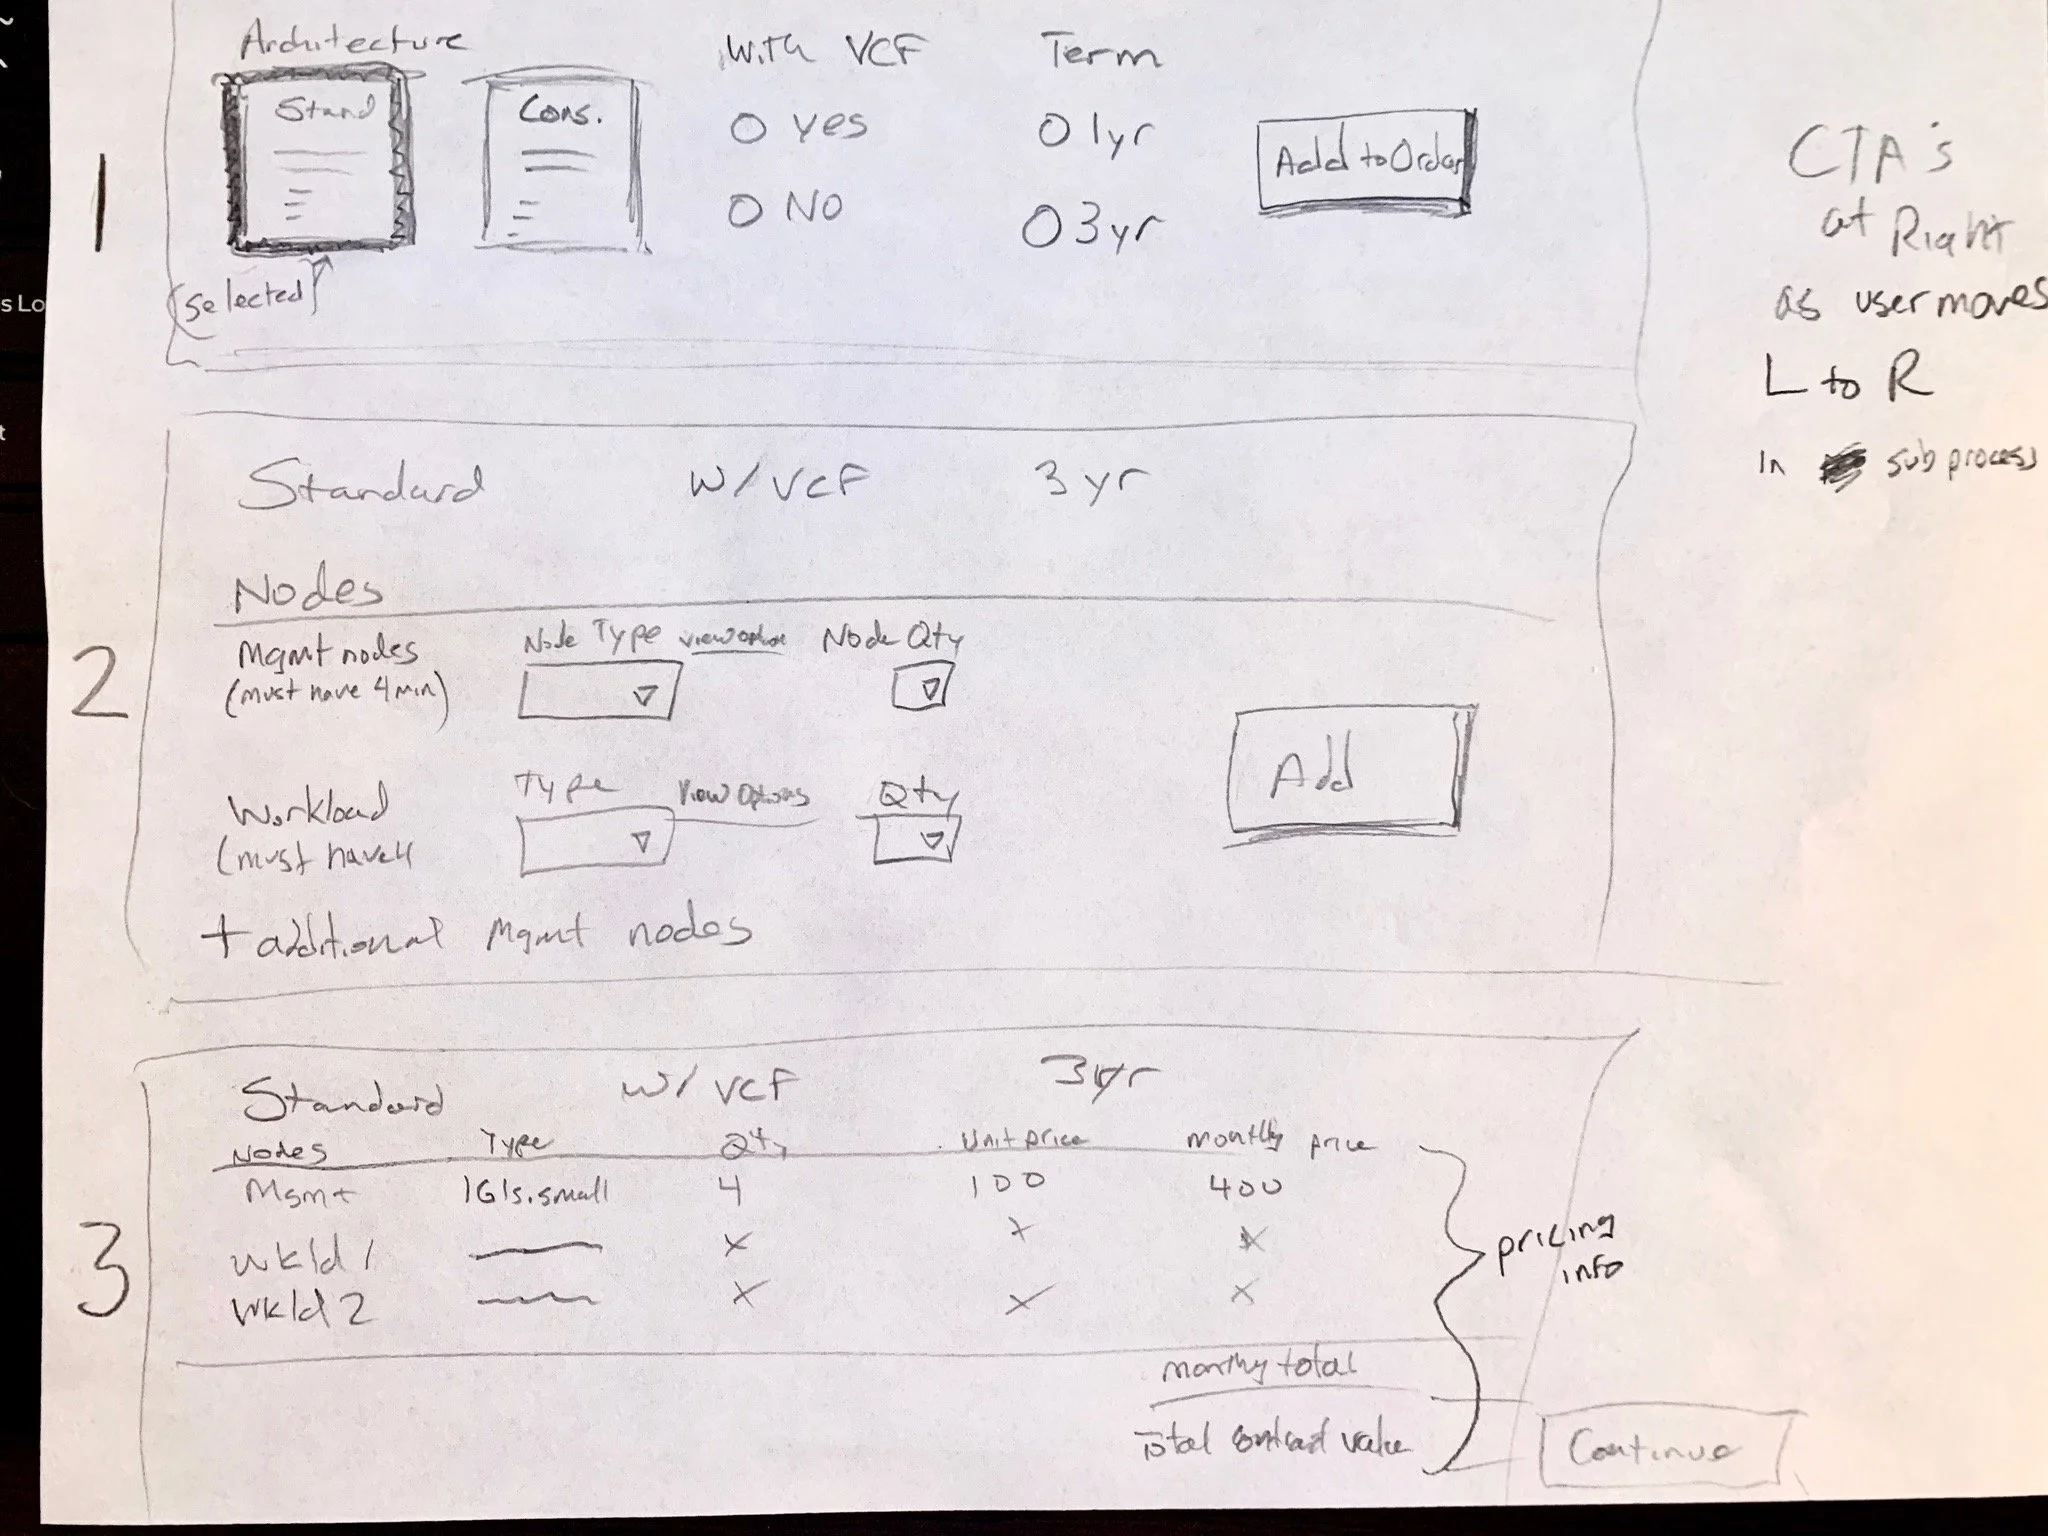 Architecture With VCF Term
Stand Cons.
O Yes O 1yr
Add to Order
O No O 3yr
(selected)
1
CTA's
at Right
as user moves
L to R
in sub process
s Lo
t
Standard W/VCF 3 yr
Nodes
Mgmt nodes Node Type Node Qty
(must have 4 min)
2
Add
Workload Type View Options Qty
(must have 4
+ additional Mgmt nodes
Standard W/ VCF 3yr
Nodes Type Qty Unit price Monthly price
Mgmt 1G1s.small 4 100 400
Wkld 1 x x x
Wkld 2 x x x
3
pricing
info
monthly total
Total contract value
Continue